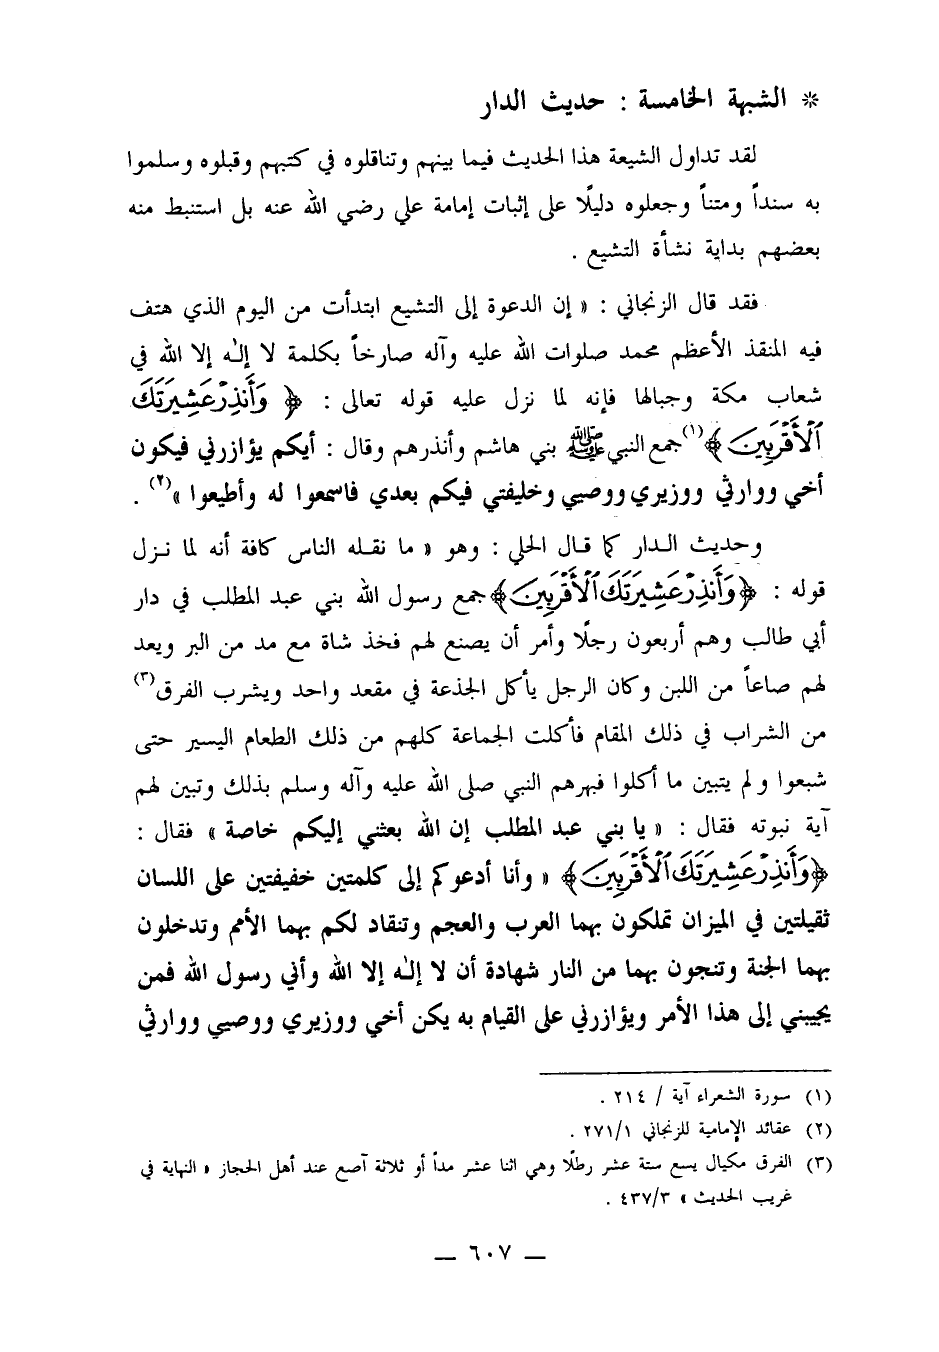 * الشبهة الخامسة : حديث الدار
لقد تداول الشيعة هذا الحديث فيما بينهم وتناقلوه في كتبهم وقبلوه وسلموا
به سنداً ومتناً وجعلوه دليلًا على إثبات إمامة علي رضي الله عنه بل استنبط منه
بعضهم بداية نشأة التشيع .
فقد قال الزنجاني : « إن الدعوة إلى التشيع ابتدأت من اليوم الذي هتف
فيه المنقذ الأعظم محمد صلوات الله عليه وآله صارخاً بكلمة لا إلٰه إلا الله في
شعاب مكة وجبالها فإنه لما نزل عليه قوله تعالى : ﴿ وَأَنذِرْ عَشِيرَتَكَ
ٱلْأَقْرَبِينَ ﴾(١) جمع النبي ﷺ بني هاشم وأنذرهم وقال : أيكم يؤازرني فيكون
أخي ووارثي ووزيري ووصيي وخليفتي فيكم بعدي فاسمعوا له وأطيعوا »(٢) .
وحديث الدار كما قال الحلي : وهو « ما نقله الناس كافة أنه لما نزل
قوله : ﴿وَأَنذِرْ عَشِيرَتَكَ ٱلْأَقْرَبِينَ﴾ جمع رسول الله بني عبد المطلب في دار
أبي طالب وهم أربعون رجلًا وأمر أن يصنع لهم فخذ شاة مع مد من البر ويعد
لهم صاعاً من اللبن وكان الرجل يأكل الجذعة في مقعد واحد ويشرب الفرق(٣)
من الشراب في ذلك المقام فأكلت الجماعة كلهم من ذلك الطعام اليسير حتى
شبعوا ولم يتبين ما أكلوا فبهرهم النبي صلى الله عليه وآله وسلم بذلك وتبين لهم
آية نبوته فقال : « يا بني عبد المطلب إن الله بعثني إليكم خاصة » فقال :
﴿وَأَنذِرْ عَشِيرَتَكَ ٱلْأَقْرَبِينَ﴾ « وأنا أدعوكم إلى كلمتين خفيفتين على اللسان
ثقيلتين في الميزان تملكون بهما العرب والعجم وتنقاد لكم بهما الأمم وتدخلون
بهما الجنة وتنجون بهما من النار شهادة أن لا إلٰه إلا الله وأني رسول الله فمن
يجيبني إلى هذا الأمر ويؤازرني على القيام به يكن أخي ووزيري ووصيي ووارثي
(١) سورة الشعراء آية / ٢١٤ .
(٢) عقائد الإمامية للزنجاني ٢٧١/١ .
(٣) الفرق مكيال يسع ستة عشر رطلًا وهي اثنا عشر مداً أو ثلاثة آصع عند أهل الحجاز « النهاية في
غريب الحديث » ٤٣٧/٣ .
— ٦٠٧ —